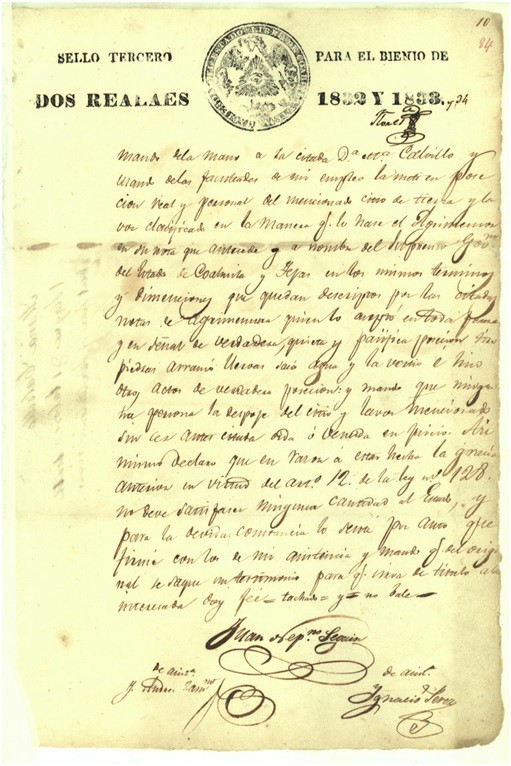 10
84
SELLO TERCERO
PARA EL BIENIO DE
DOS REALAES
1832 Y 1833. y 34
mando dela mano a la citada Da. Ma. Calvillo y
usando delas facultades de mi empleo la metí en poce
cion real y personal del mencionado citio de tierra y la
vor clasificado en la manera qe. lo hase el Agrimensor
en su nota que antecede y a nombre del Supremo Govno.
del Estado de Coahuila y Tejas en los mismos terminos
y dimenciones que quedan descriptos por las citadas
notas de Agrimensura quien lo acepto en toda forma
y en señal de verdadera, quieta y pasifica posecion tiro
piedras arranco yervas saco agua y la vertio e hizo
otros actos de verdadera posecion: y mando que ningu
na persona la despoje del citio y lavor mencionado
sin ser antes oida ó vencida en juicio. Asi
mismo declaro que en razon a estar hecha la gracia
anterior en virtud del arto. 12. de la ley no. 128.
no deve satisfacer ninguna cantidad al Estado, y
para la devida constancia lo serré por auto que
firmé con los de mi asistencia y mando qe. del origi
nal se saque un testimonio para qe. sirva de titulo a la
interesada doy fee = tachado = y = no bale =
Juan Nepno. Seguin
de asisa.
de asisa.
Ignacio Perez